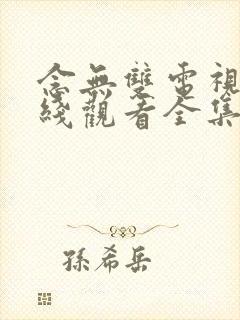 念無雙電視
綫觀看全集
孫希岳